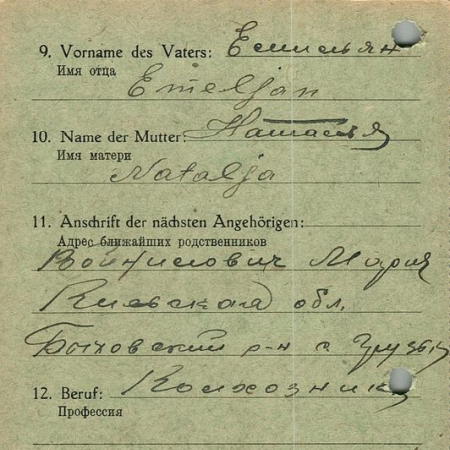 9. Vorname des Vaters: Емильян
Имя отца
Emeljan
10. Name der Mutter: Наталья
Имя матери
Natalja
11. Anschrift der nächsten Angehörigen:
Адрес ближайших родственников
Войнилович Мария
Киевская обл.
р-н с.
12. Beruf: Колхозник
Профессия